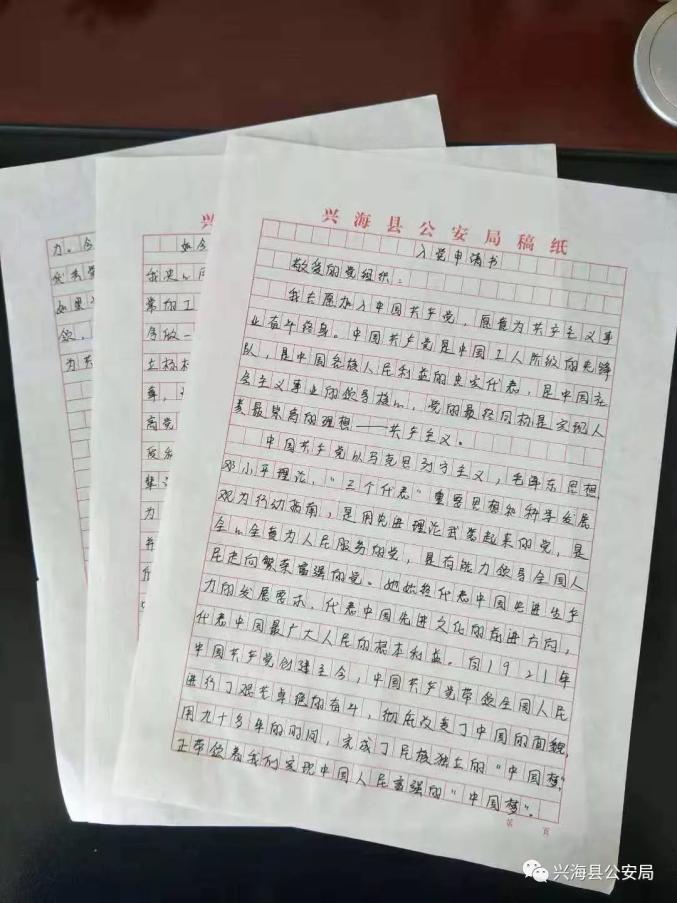 兴海县公安局稿纸
入党申请书
敬爱的党组织：
我志愿加入中国共产党，愿意为共产主义事
业奋斗终身。中国共产党是中国工人阶级的先锋
队，是中国各族人民利益的忠实代表，是中国社
会主义事业的领导核心，党的最终目标是实现人
类最崇高的理想——共产主义。
中国共产党以马克思列宁主义，毛泽东思想
邓小平理论，“三个代表”重要思想和科学发展
观为行动指南，是用先进理论武装起来的党，是
全心全意为人民服务的党，是有能力领导全国人
民走向繁荣富强的党。她始终代表中国先进生产
力的发展要求，代表中国先进文化的前进方向，
代表中国最广大人民的根本利益。自1921年
中国共产党创建至今，中国共产党带领全国人民
进行了艰苦卓绝的奋斗，彻底改变了中国的面貌，
用九十多年的时间，完成了民族独立的“中国梦”
正带领着我们实现中国人民富强的“中国梦”。
第 页
兴
如今
我决心
案的工
身做一
为
并
力。今
如果
领，
为共
兴海县公安局